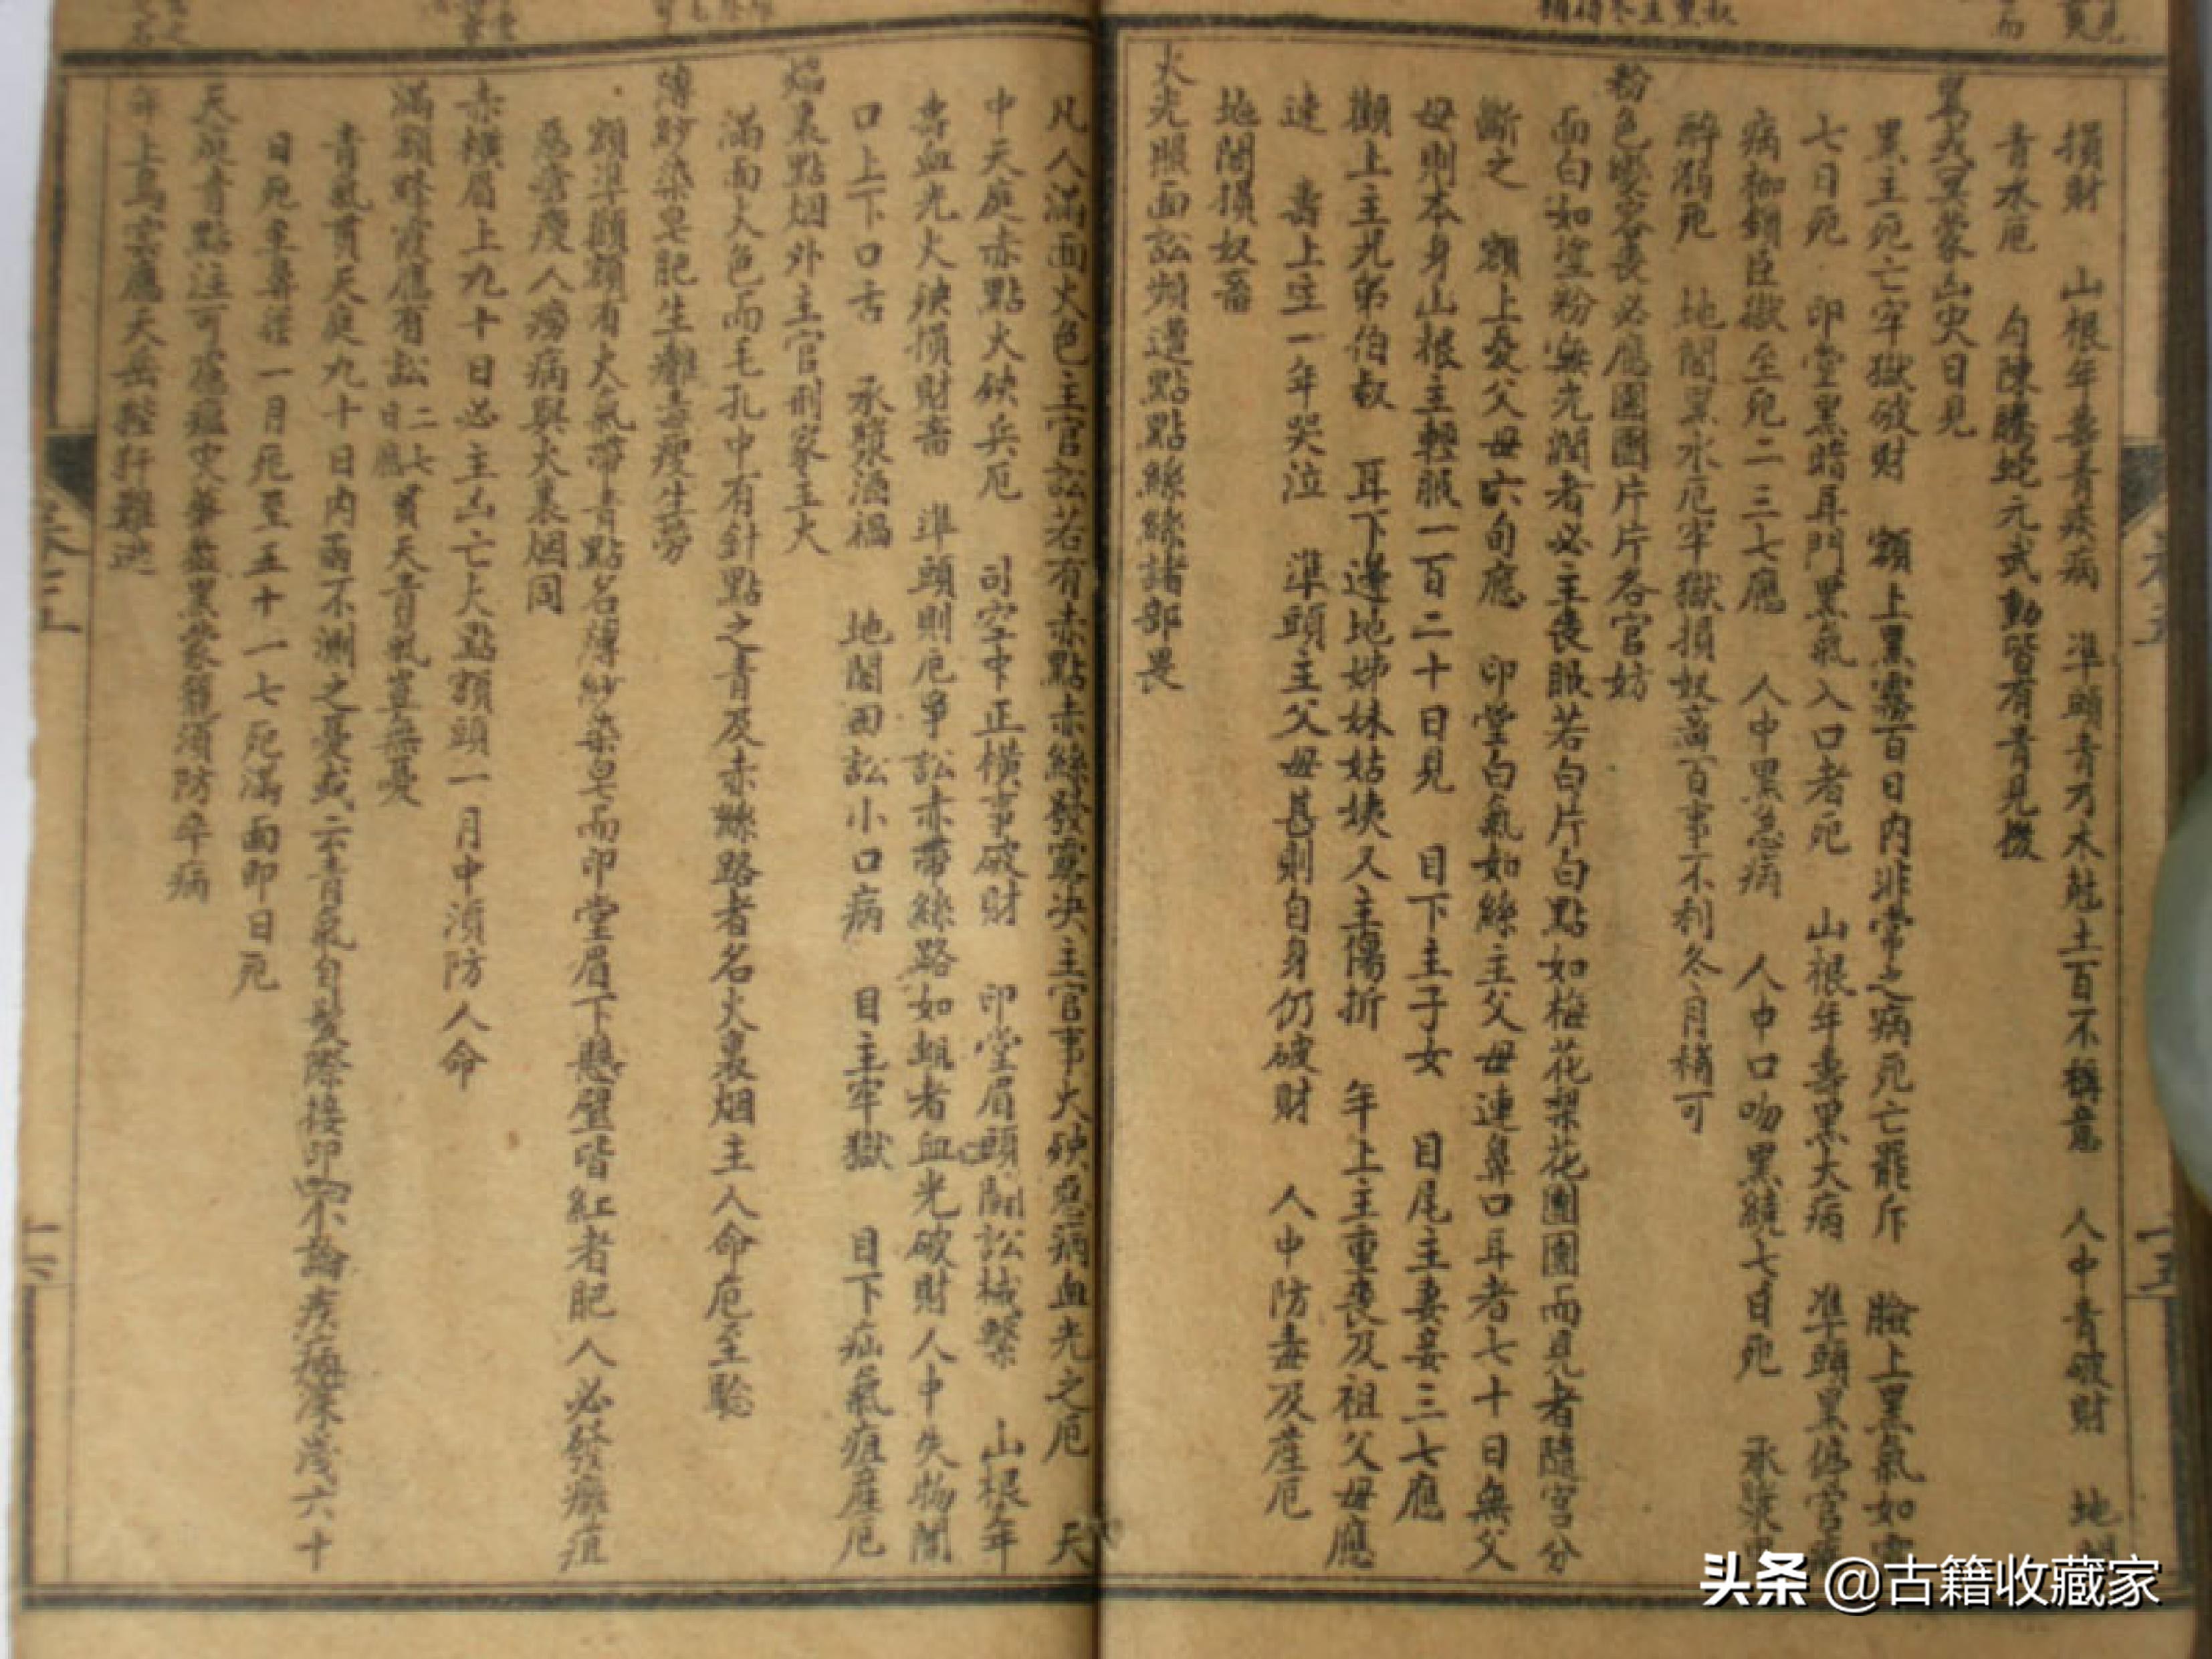 損財　山根年壽青疾病　準頭青乃木尅土百不稱意　人中青破財　地閣
青水厄　勾陳騰蛇元武動皆有青見機
黑或冥蒙凶灾日見
黑主死亡牢獄破財　額上黑霧百日內非常之病死亡罷斥　臉上黑氣如
七日死　印堂黑暗耳門黑氣入口者死　山根年壽黑大病　準頭黑停官
病枷鎖臣獄至死二三七應　人中黑急病　人中口吻黑繞七日死　承漿
醉溺死　地閣黑水厄牢獄損奴畜百事不利冬月稍可
粉色變容喪必應團團片片各宮妨
面白如塗粉無光潤者必主喪服若白片白點如梅花梨花團團而見者隨宮分
斷之　額上憂父母六旬應　印堂白氣如絲主父母連鼻口耳者七十日無父
母則本身山根主輕服一百二十日見　目下主子女　目尾主妻妾三七應
顴上主兄弟伯叔　耳下邊地姊妹姑姨又主傷折　年上主重喪及祖父母應
速　壽上主一年哭泣　準頭主父母甚則自身仍破財　人中防毒及産厄
地閣損奴畜
火光照面訟頻遭點點絲絲諸部畏
凡人滿面火色主官訟若有赤點赤絲發露决主官事火殃惡病血光之厄　天
中天庭赤點火殃兵厄　司空中正橫事破財　印堂眉頭鬬訟械繫　山根年
壽血光火殃損財畜　準頭則厄爭訟赤帶絲路如蛆者血光破財人中失物閑
口上下口舌　承漿酒禍　地閣田訟小口病　目主牢獄　目下疝氣疽産厄
焰裏點烟外主官刑家主火
滿面火色而毛孔中有針點之青及赤絲路者名火裏烟主人命厄至驗
薄紗染皂肥生難毒瘦生癆
額準顴頰有火氣帶青點名薄紗染皂而印堂眉下懸壁皆紅者肥人必發癰疽
惡瘡瘦人癆病與火裏烟同
赤橫眉上九十日必主凶亡火點額頭一月中須防人命
滿額蜂霞應有訟二七日應貫天青氣豈無憂
青氣貫天庭九十日內有不測之憂或云青氣自髮際接印不論疾病深淺六十
日死年壽
一月死至五十一七死滿面即日死
天庭青點注可慮瘟灾黑蒙籠須防卒病
年上烏雲應天岳
難逃
卷三
十六
十五
头条 @古籍收藏家